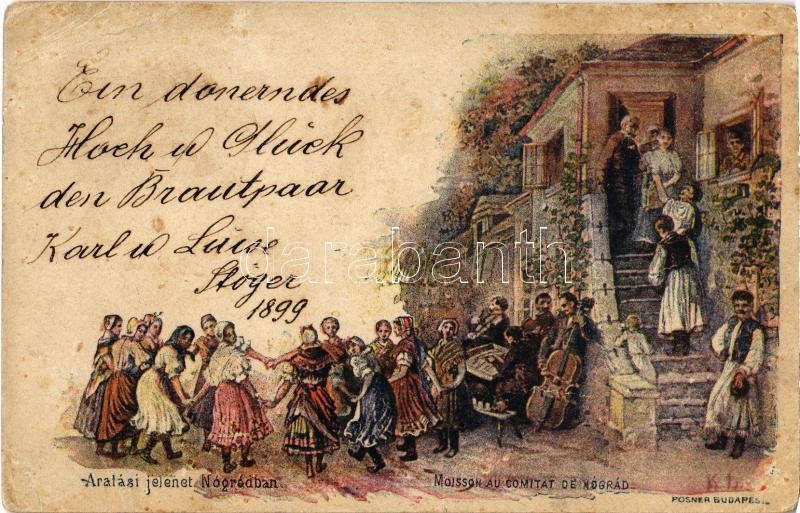 Ein donerndes
Hoch u Glück
den Brautpaar
Karl u Luise
Stöger
1899
darabanth
Aratási jelenet Nógrádban.
MOISSON AU COMITAT DE NÓGRÁD
POSNER BUDAPEST